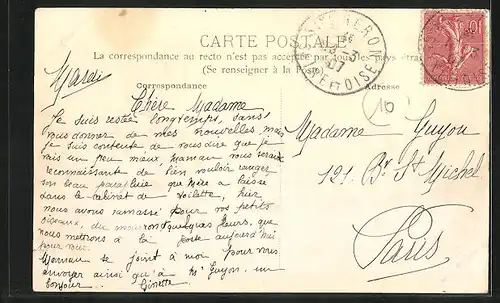 CARTE POSTALE
La correspondance au recto n'est pas acceptée par tous les pays étran
(Se renseigner à la Poste)
Correspondance
Adresse
Mardi
Chère Madame
Je suis restée longtemps, sans
vous donner de mes nouvelles mais
je suis contente de vous dire que je
vais un peu mieux, Maman vous serait
reconnaissante de bien vouloir ranger
son beau parapluie que Père a laissé
dans le cabinet de toilette, hier
nous avons ramassé pour vos petits
oiseaux, du mouron quelques fleurs, que
nous mettrons à la poste aujourd'hui
pour vous.
Maman se joint à moi pour vous
envoyer ainsi qu'à Mr Guyon un
bonjour. Ginette
Madame Guyon
121. Bd St Michel
Paris
10
SEINE ET OISE
07